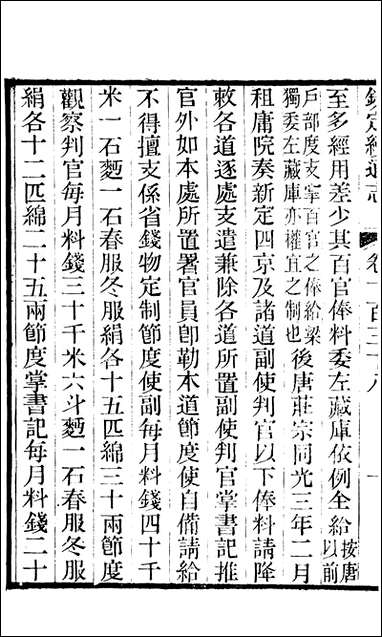 欽定續通志 卷一百三十八
至多經用差少其百官俸料委左藏庫依例全給按唐以前
戶部度支掌百官之俸給梁獨委左藏庫亦權宜之制也後唐莊宗同光三年二月
租庸院奏新定四京及諸道副使判官以下俸料請降
敕各道逐處支遣兼除各道所置副使判官掌書記推
官外如本處所置署官員卽勒本道節度使自備請給
不得擅支係省錢物定制節度使副每月料錢四十千
米一石麪一石春服冬服絹各十五匹綿三十兩節度
觀察判官每月料錢三十千米六斗麪一石春服冬服
絹各十二匹綿二十五兩節度掌書記每月料錢二十